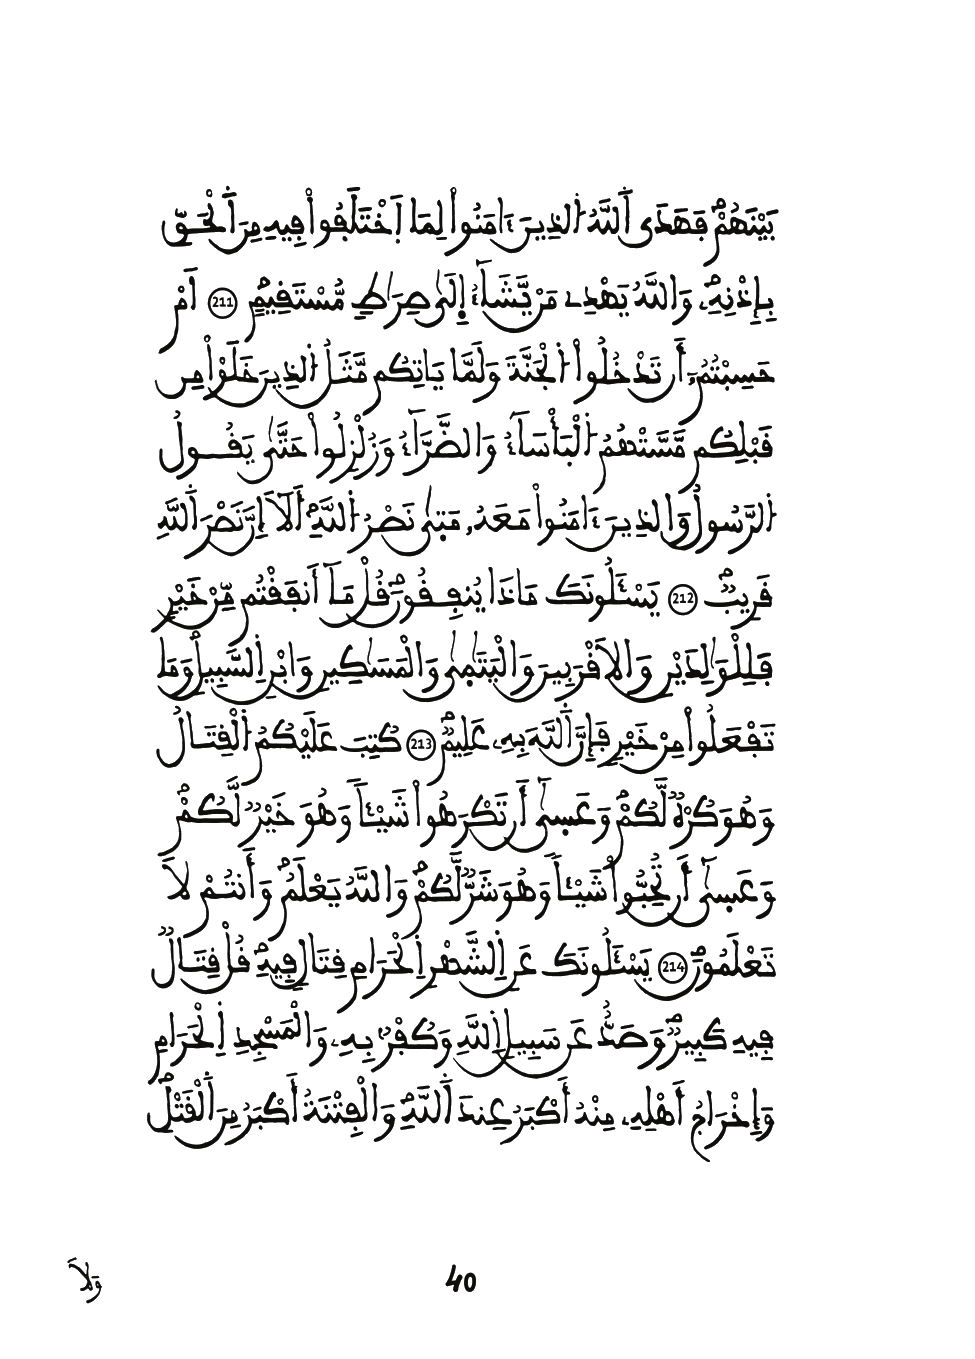 بَيْنَهُمْ فَهَدَى اَ۬للَّهُ اُ۬لذِينَ ءَامَنُواْ لِمَا اَ۪خْتَلَفُواْ فِيهِ مِنَ اَ۬لْحَقِّ
بِإِذْنِهِۦ وَاللَّهُ يَهْدِے مَنْ يَّشَآءُ اِلَىٰ صِرَاطٖ مُّسْتَقِيمٍ 211 اَمْ
حَسِبْتُمُۥٓ أَن تَدْخُلُواْ اُ۬لْجَنَّةَ وَلَمَّا يَاتِكُم مَّثَلُ اُ۬لذِينَ خَلَوْاْ مِن
قَبْلِكُم مَّسَّتْهُمُ اُ۬لْبَأْسَآءُ وَالضَّرَّآءُ وَزُلْزِلُواْ حَتَّىٰ يَقُولُ
اُ۬لرَّسُولُ وَالذِينَ ءَامَنُواْ مَعَهُۥ مَتَىٰ نَصْرُ اُ۬للَّهِۖ أَلَآ إِنَّ نَصْرَ اَ۬للَّهِ
قَرِيبٞ 212 يَسْـَٔلُونَكَ مَاذَا يُنفِقُونَۖ قُلْ مَآ أَنفَقْتُم مِّنْ خَيْرٖ
فَلِلْوَٰلِدَيْنِ وَالَاقْرَبِينَ وَالْيَتَٰمَىٰ وَالْمَسَٰكِينِ وَابْنِ اِ۬لسَّبِيلِ وَمَا
تَفْعَلُواْ مِنْ خَيْرٖ فَإِنَّ اَ۬للَّهَ بِهِۦ عَلِيمٞ 213 كُتِبَ عَلَيْكُمُ اُ۬لْقِتَالُ
وَهُوَ كُرْهٞ لَّكُمْ وَعَسَىٰٓ أَن تَكْرَهُواْ شَيْـٔاٗ وَهُوَ خَيْرٞ لَّكُمْ
وَعَسَىٰٓ أَن تُحِبُّواْ شَيْـٔاٗ وَهُوَ شَرّٞ لَّكُمْ وَاللَّهُ يَعْلَمُ وَأَنتُمْ لَا
تَعْلَمُونَ 214 يَسْـَٔلُونَكَ عَنِ اِ۬لشَّهْرِ اِ۬لْحَرَامِ قِتَالٖ فِيهِ قُلْ قِتَالٞ
فِيهِ كَبِيرٞ وَصَدٌّ عَن سَبِيلِ اِ۬للَّهِ وَكُفْرُۢ بِهِۦ وَالْمَسْجِدِ اِ۬لْحَرَامِ
وَإِخْرَاجُ أَهْلِهِۦ مِنْهُ أَكْبَرُ عِندَ اَ۬للَّهِ وَالْفِتْنَةُ أَكْبَرُ مِنَ اَ۬لْقَتْلِ
40
وَلَا